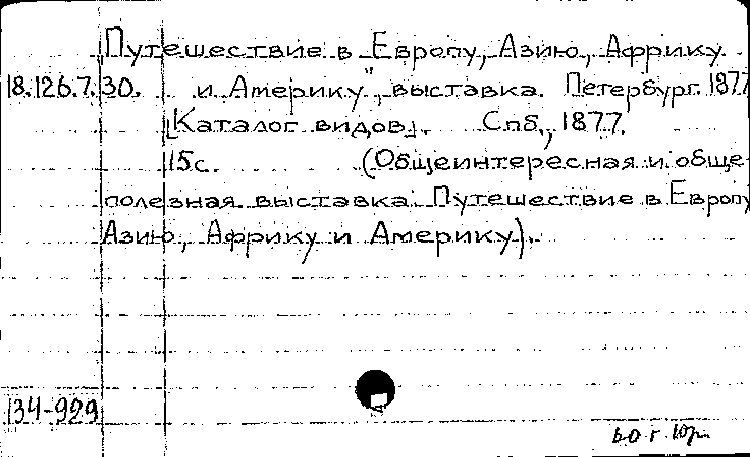 „Путешествие в Европу, Азию, Африку
18.126.7.30. и Америку", выставка. Петербург. 1877
[Каталог видов]. Спб., 1877.
15с. (Общеинтересная и обще-
полезная выставка. Путешествие в Европу
Азию, Африку и Америку).
134-929